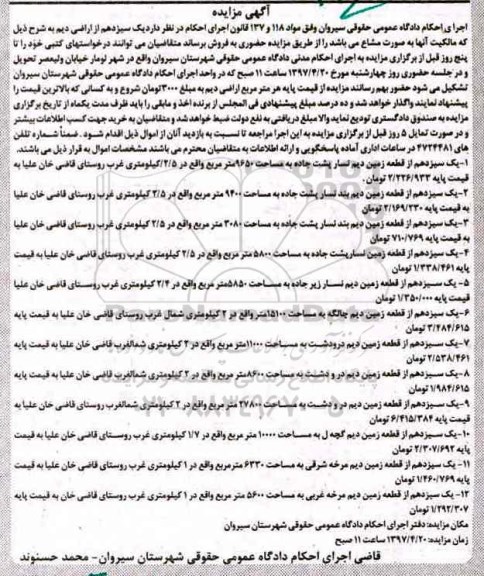 آگهی مزایده
اجرای احکام دادگاه عمومی حقوقی سیروان وفق مواد ۱۱۸ و ۱۳۷ قانون اجرای احکام در نظر دارد یک سیزدهم از اراضی دیم به شرح ذیل
که مالکیت آنها به صورت مشاع می باشد را از طریق مزایده حضوری به فروش برساند متقاضیان می توانند درخواستهای کتبی خود را تا
پنج روز قبل از برگزاری مزایده به اجرای احکام مدنی دادگاه عمومی حقوقی شهرستان سیروان واقع در شهر لومار خیابان ولیعصر تحویل
و در جلسه حضوری روز چهارشنبه مورخ ۱۳۹۷/۴/۲۰ ساعت ۱۱ صبح که در واحد اجرای احکام دادگاه عمومی حقوقی شهرستان سیروان
تشکیل می شود حضور بهم رسانند مزایده از قیمت پایه هر متر مربع اراضی دیم به مبلغ ۳۰۰۰ تومان شروع و به کسانی که بالاترین قیمت را
پیشنهاد نمایند واگذار خواهد شد و ده درصد مبلغ پیشنهادی فی المجلس از برنده اخذ و مابقی را باید ظرف مدت یکماه از تاریخ برگزاری
مزایده به صندوق دادگستری تودیع نماید والا مبلغ دریافتی به نفع دولت ضبط خواهد شد و متقاضیان به خرید جهت کسب اطلاعات بیشتر
و در صورت تمایل ۵ روز قبل از برگزاری مزایده به این اجرا مراجعه تا نسبت به بازدید آنان از اموال ذیل اقدام شود. ضمناً شماره تلفن
های ۴۷۲۴۴۸۱ در ساعات اداری آماده پاسخگویی و ارائه اطلاعات به متقاضیان محترم می باشند مشخصات اموال به قرار ذیل می باشند.
۱- یک سیزدهم از قطعه زمین دیم نسار پشت جاده به مساحت ۹۶۵۰ متر مربع واقع در ۲/۵ کیلومتری غرب روستای قاضی خان علیا به
قیمت پایه ۲/۲۲۶/۹۳۳ تومان.
۲- یک سیزدهم از قطعه زمین دیم بند نسار پشت جاده به مساحت ۹۴۰۰ متر مربع واقع در ۲/۵ کیلومتری غرب روستای قاضی خان علیا
به قیمت پایه ۲/۱۶۹/۲۳۰ تومان
۳- یک سیزدهم از قطعه زمین دیم بند نسار پشت جاده به مساحت ۳۰۸۰ متر مربع واقع در ۲/۵ کیلومتری غرب روستای قاضی خان علیا
به قیمت پایه ۷۱۰/۷۶۹ تومان
۴- یک سیزدهم از قطعه زمین نسار پشت جاده به مساحت ۵۸۰۰ متر مربع واقع در ۲/۵ کیلومتری غرب روستای قاضی خان علیا به قیمت
پایه ۱/۳۳۸/۴۶۱ تومان
۵- یک سیزدهم از قطعه زمین دیم نسار زیر جاده به مساحت ۵۸۵۰ متر مربع واقع در ۲/۴ کیلومتری غرب روستای قاضی خان علیا به
قیمت پایه ۱/۳۵۰/۰۰۰ تومان
۶- یک سیزدهم از قطعه زمین دیم چالگه به مساحت ۱۵۱۰۰ متر واقع در ۲ کیلومتری شمال غرب روستای قاضی خان علیا به قیمت پایه
۳/۴۸۴/۶۱۵ تومان
۷- یک سیزدهم از قطعه زمین دیم درودشت به مساحت ۱۱۰۰۰ متر مربع واقع در ۲ کیلومتری شمالغرب قاضی خان علیا به قیمت پایه
۲/۵۳۸/۴۶۱ تومان
۸- یک سیزدهم از قطعه زمین دیم در و دشت به مساحت ۸۶۰۰ متر مربع واقع در ۲ کیلومتری شمالغرب قاضی خان علیا به قیمت پایه
۱/۹۸۴/۶۱۵ تومان
۹- یک سیزدهم از قطعه زمین دیم در و دشت به مساحت ۲۷۸۰۰ متر مربع واقع در ۲ کیلومتری شمالغرب قاضی خان علیا به قیمت پایه
۶/۴۱۵/۳۸۴ تومان
۱۰- یک سیزدهم از قطعه زمین دیم گچه ل به مساحت ۱۰۰۰۰ متر مربع واقع در ۱/۷ کیلومتری غرب روستای قاضی خان علیا به قیمت
پایه ۲/۳۰۷/۶۹۲ تومان
۱۱- یک سیزدهم از قطعه زمین دیم مرخه شرقی به مساحت ۶۳۳۰ متر مربع واقع در ۱ کیلومتری غرب روستای قاضی خان علیا به قیمت
پایه ۱/۴۶۰/۷۶۹ تومان
۱۲- یک سیزدهم از قطعه زمین دیم مرخه غربی به مساحت ۵۶۰۰ متر مربع واقع در ۱ کیلومتری غرب روستای قاضی خان علیا به قیمت پایه
۱/۲۹۲/۳۰۷ تومان
مکان مزایده: دفتر اجرای احکام دادگاه عمومی حقوقی شهرستان سیروان
زمان مزایده: ۱۳۹۷/۴/۲۰ ساعت ۱۱ صبح
قاضی اجرای احکام دادگاه عمومی حقوقی شهرستان سیروان- محمد حسنوند